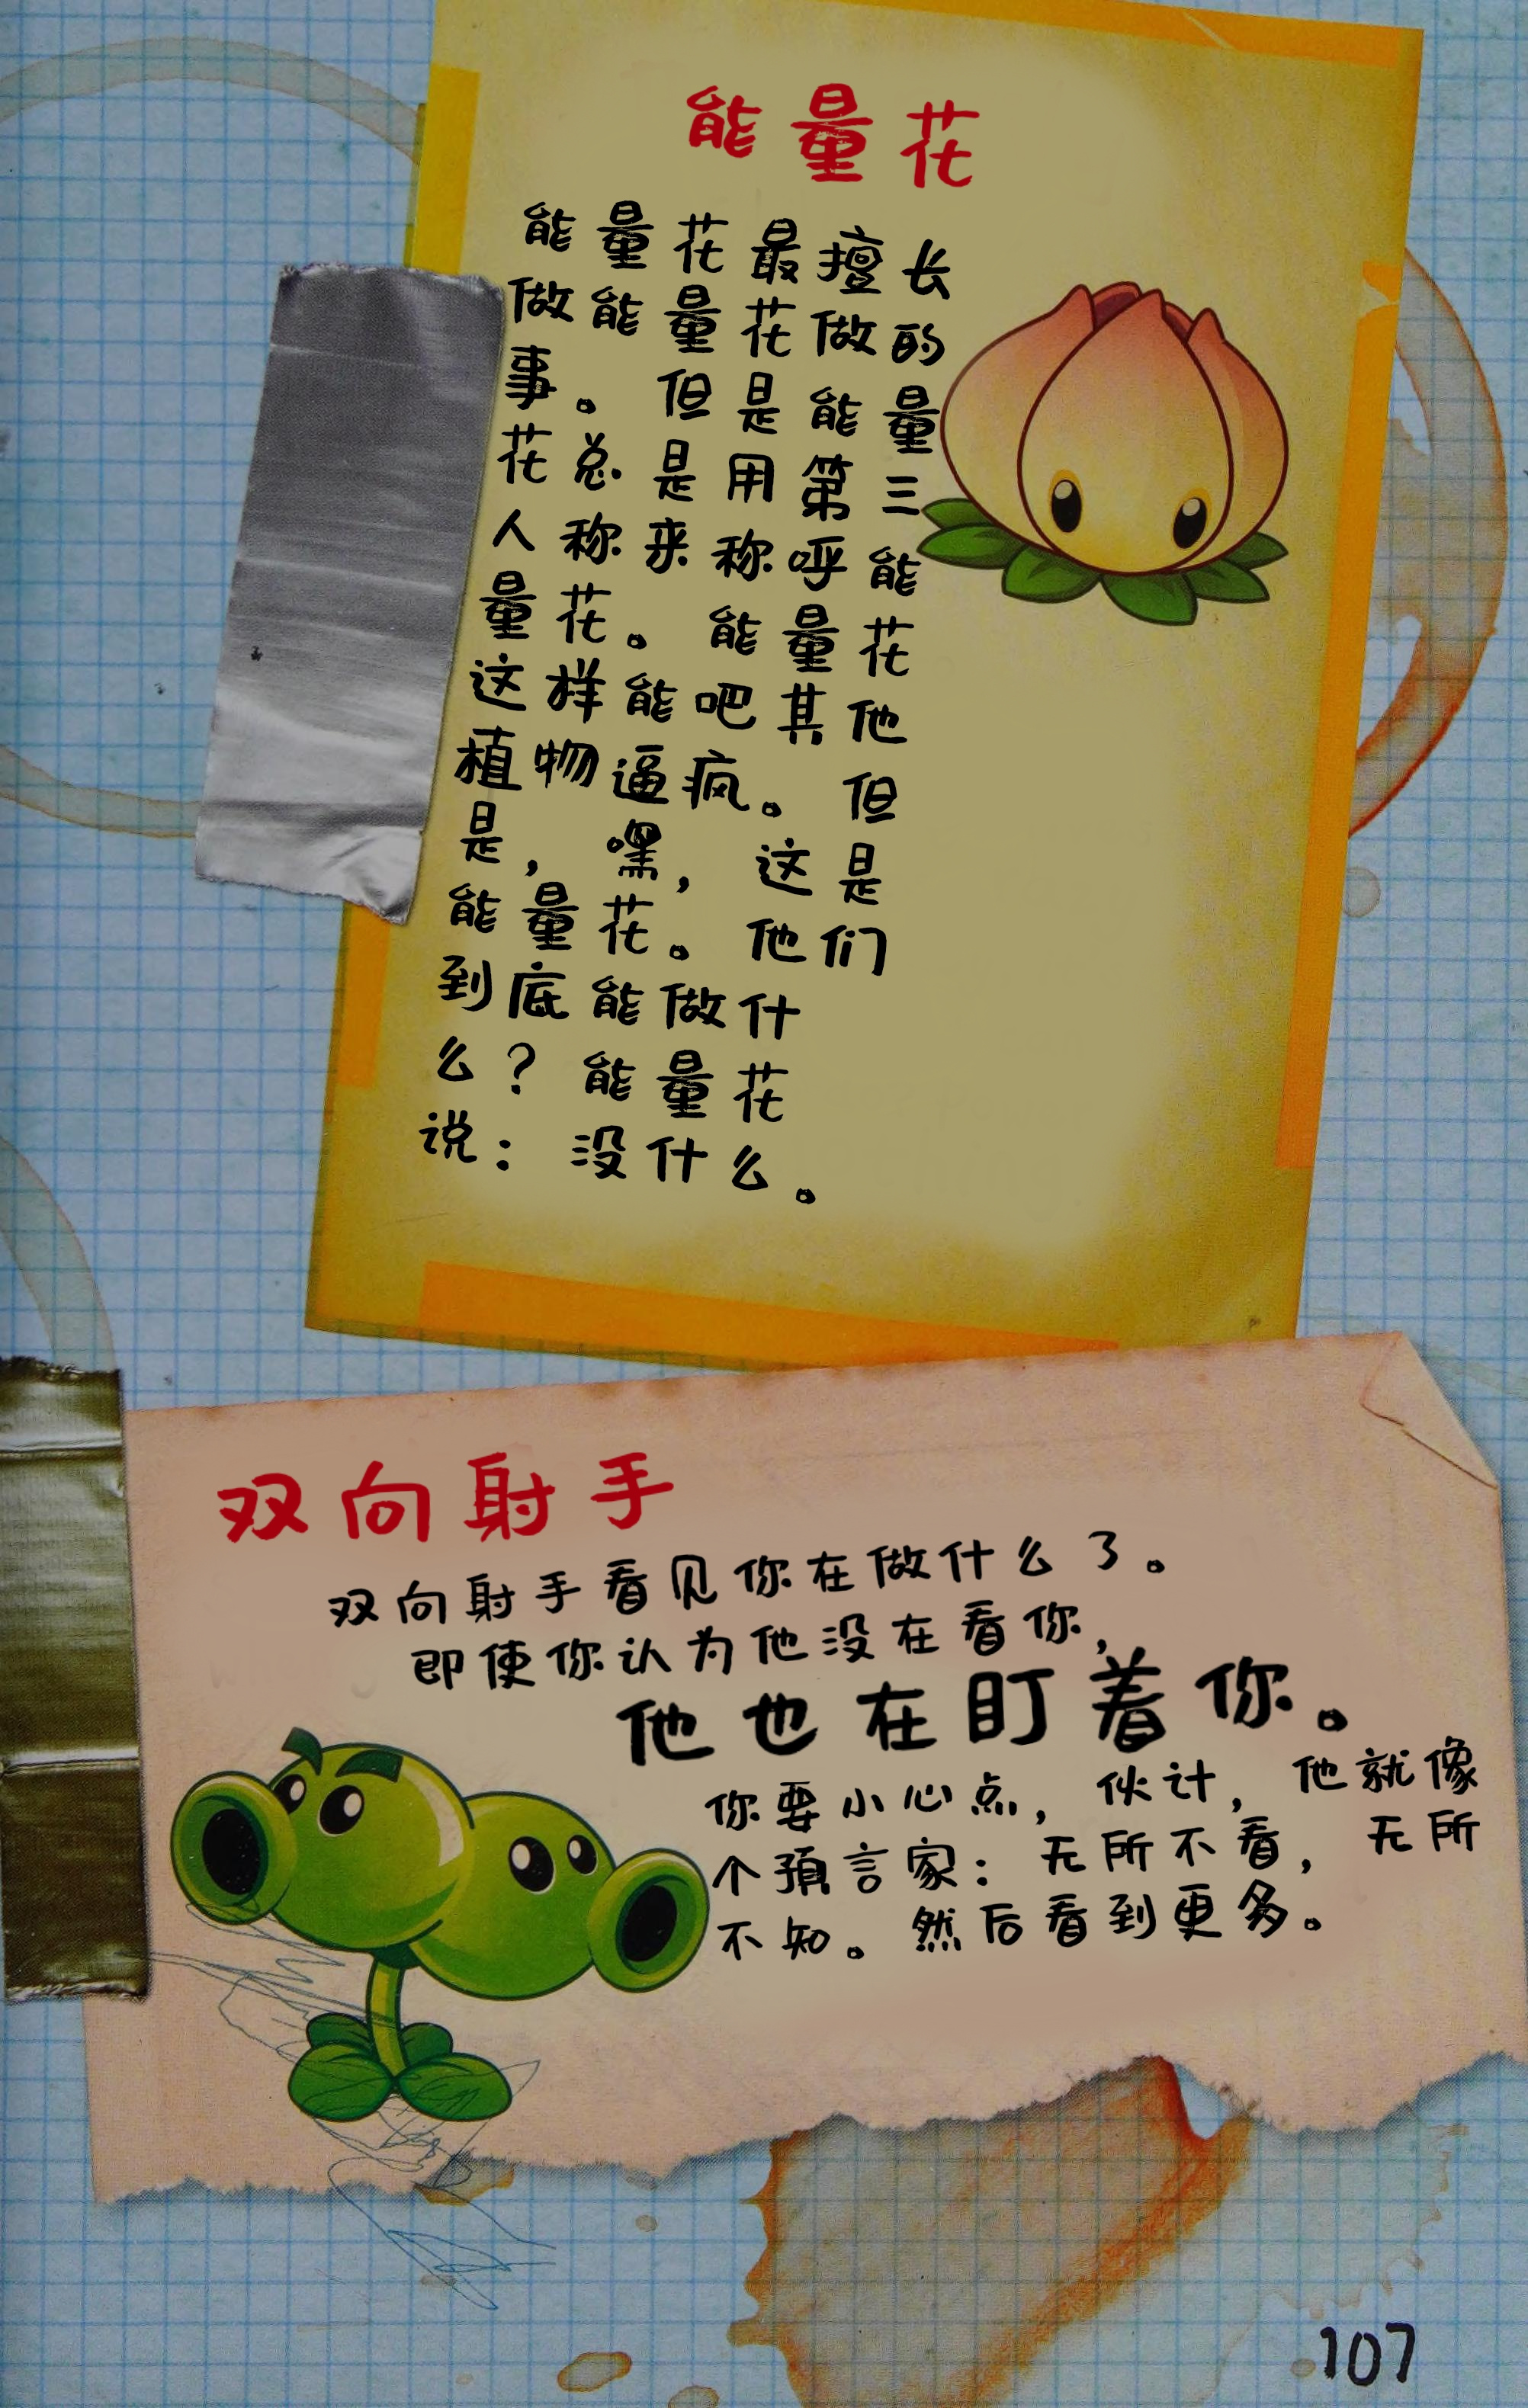 能量花
能量花最擅长
做能量花做的
事。但是能量
花总是用第三
人称来称呼能
量花。能量花
这样能吧其他
植物逼疯。但
是，嘿，这是
能量花。他们
到底能做什
么？能量花
说：没什么。
双向射手
双向射手看见你在做什么了。
即使你认为他没在看你，
他也在盯着你。
你要小心点，伙计，他就像
个预言家：无所不看，无所
不知。然后看到更多。
107